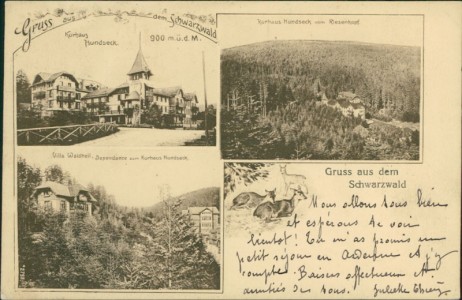 Gruss aus dem Schwarzwald
Kurhaus
Hundseck.
900 m.ü.d.M.
Kurhaus Hundseck vom Riesenkopf
Villa Waldheil, Dependance zum Kurhaus Hundseck.
Gruss aus dem
Schwarzwald
Nous allons tous bien
et espérons te voir
bientôt! Tu m'as promis un
petit séjour en et j'y
compte. Baisers affectueux et
amitiés de nous. Juliette